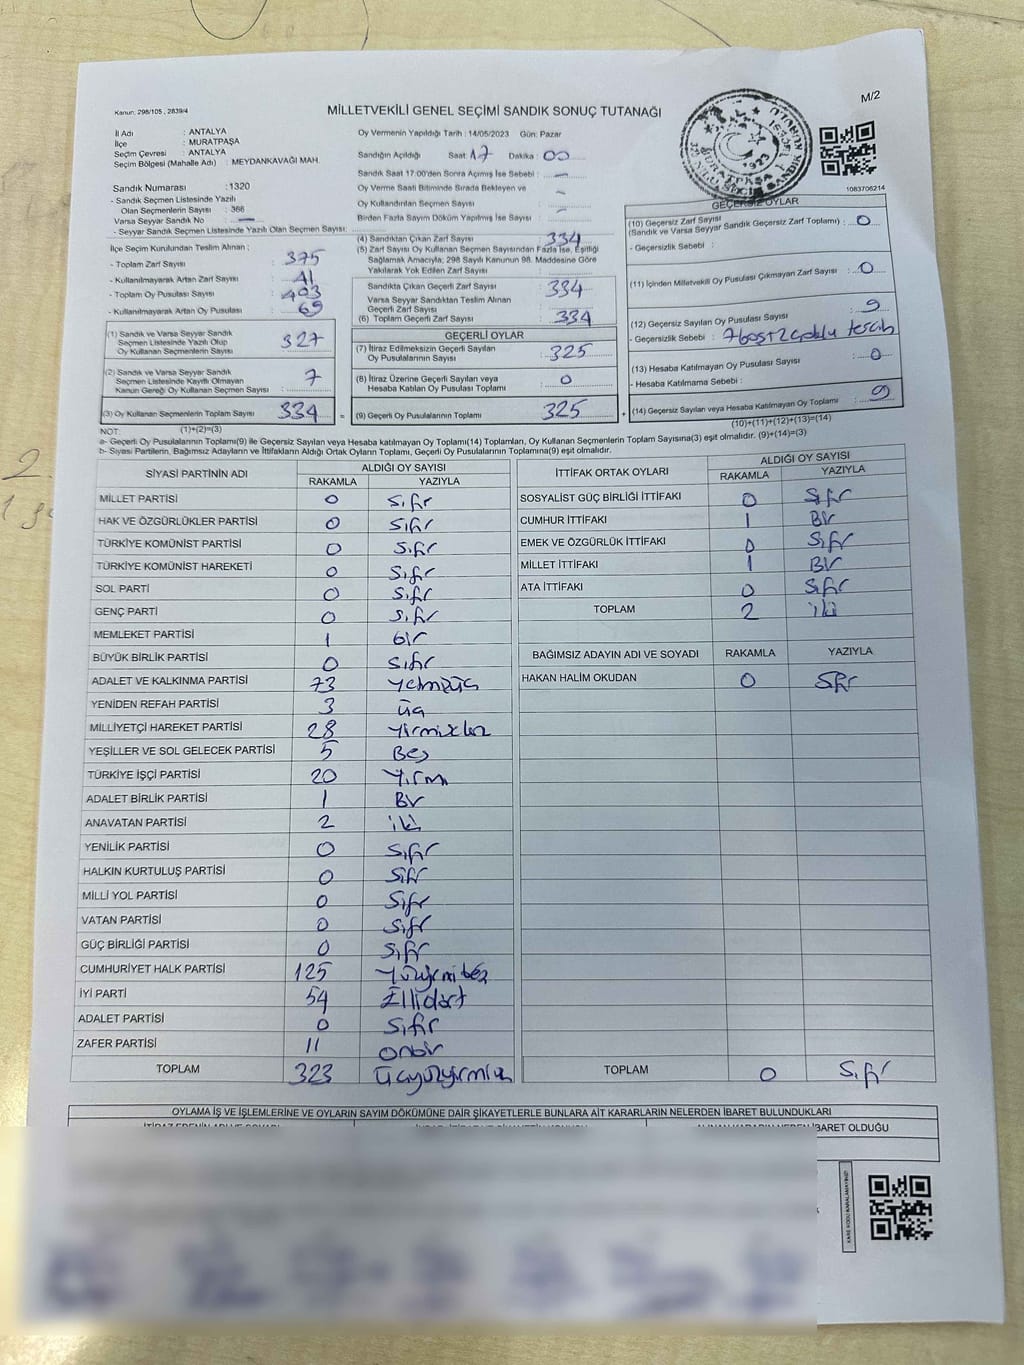 Kanun: 298/105 , 2839/4
MİLLETVEKİLİ GENEL SEÇİMİ SANDIK SONUÇ TUTANAĞI
M/2
İl Adı : ANTALYA
İlçe : MURATPAŞA
Seçim Çevresi : ANTALYA
Seçim Bölgesi (Mahalle Adı) : MEYDANKAVAĞI MAH.
Sandık Numarası :1320
- Sandık Seçmen Listesinde Yazılı
Olan Seçmenlerin Sayısı : 366
Varsa Seyyar Sandık No : —
- Seyyar Sandık Seçmen Listesinde Yazılı Olan Seçmen Sayısı:
İlçe Seçim Kurulundan Teslim Alınan :
- Toplam Zarf Sayısı : 375
- Kullanılmayarak Artan Zarf Sayısı : 41
- Toplam Oy Pusulası Sayısı : 403
- Kullanılmayarak Artan Oy Pusulası : 69
(1) Sandık ve Varsa Seyyar Sandık
Seçmen Listesinde Yazılı Olup
Oy Kullanan Seçmenlerin Sayısı : 327
(2) Sandık ve Varsa Seyyar Sandık
Seçmen Listesinde Kayıtlı Olmayan
Kanun Gereği Oy Kullanan Seçmen Sayısı : 7
(3) Oy Kullanan Seçmenlerin Toplam Sayısı : 334
Oy Vermenin Yapıldığı Tarih : 14/05/2023 Gün: Pazar
Sandığın Açıldığı Saat: 17 Dakika : 00
Sandık Saat 17:00'den Sonra Açılmış İse Sebebi : —
Oy Verme Saati Bitiminde Sırada Bekleyen ve
Oy Kullandırılan Seçmen Sayısı : —
Birden Fazla Sayım Döküm Yapılmış İse Sayısı : —
(4) Sandıktan Çıkan Zarf Sayısı : 334
(5) Zarf Sayısı Oy Kullanan Seçmen Sayısından Fazla İse, Eşitliği
Sağlamak Amacıyla; 298 Sayılı Kanunun 98. Maddesine Göre
Yakılarak Yok Edilen Zarf Sayısı :
Sandıkta Çıkan Geçerli Zarf Sayısı : 334
Varsa Seyyar Sandıktan Teslim Alınan
Geçerli Zarf Sayısı :
(6) Toplam Geçerli Zarf Sayısı : 334
GEÇERLİ OYLAR
(7) İtiraz Edilmeksizin Geçerli Sayılan
Oy Pusulalarının Sayısı : 325
(8) İtiraz Üzerine Geçerli Sayılan veya
Hesaba Katılan Oy Pusulası Toplamı : 0
= (9) Geçerli Oy Pusulalarının Toplamı : 325 +
1083706214
GEÇERSİZ OYLAR
(10) Geçersiz Zarf Sayısı
(Sandık ve Varsa Seyyar Sandık Geçersiz Zarf Toplamı) : 0
- Geçersizlik Sebebi :
(11) İçinden Milletvekili Oy Pusulası Çıkmayan Zarf Sayısı : 0
(12) Geçersiz Sayılan Oy Pusulası Sayısı : 9
- Geçersizlik Sebebi : 7 boş + 2 çoklu tercih
(13) Hesaba Katılmayan Oy Pusulası Sayısı : 0
- Hesaba Katılmama Sebebi :
(14) Geçersiz Sayılan veya Hesaba Katılmayan Oy Toplamı : 9
NOT: (1)+(2)=(3)
(10)+(11)+(12)+(13)=(14)
a- Geçerli Oy Pusulalarının Toplamı(9) ile Geçersiz Sayılan veya Hesaba katılmayan Oy Toplamı(14) Toplamları, Oy Kullanan Seçmenlerin Toplam Sayısına(3) eşit olmalıdır. (9)+(14)=(3)
b- Siyasi Partilerin, Bağımsız Adayların ve İttifakların Aldığı Ortak Oyların Toplamı, Geçerli Oy Pusulalarının Toplamına(9) eşit olmalıdır.
SİYASİ PARTİNİN ADI ALDIĞI OY SAYISI
RAKAMLA YAZIYLA
MİLLET PARTİSİ 0 Sıfır
HAK VE ÖZGÜRLÜKLER PARTİSİ 0 Sıfır
TÜRKİYE KOMÜNİST PARTİSİ 0 Sıfır
TÜRKİYE KOMÜNİST HAREKETİ 0 Sıfır
SOL PARTİ 0 Sıfır
GENÇ PARTİ 0 Sıfır
MEMLEKET PARTİSİ 1 bir
BÜYÜK BİRLİK PARTİSİ 0 Sıfır
ADALET VE KALKINMA PARTİSİ 73 Yetmişüç
YENİDEN REFAH PARTİSİ 3 üç
MİLLİYETÇİ HAREKET PARTİSİ 28 Yirmisekiz
YEŞİLLER VE SOL GELECEK PARTİSİ 5 Beş
TÜRKİYE İŞÇİ PARTİSİ 20 Yirmi
ADALET BİRLİK PARTİSİ 1 Bir
ANAVATAN PARTİSİ 2 iki
YENİLİK PARTİSİ 0 Sıfır
HALKIN KURTULUŞ PARTİSİ 0 Sıfır
MİLLİ YOL PARTİSİ 0 Sıfır
VATAN PARTİSİ 0 Sıfır
GÜÇ BİRLİĞİ PARTİSİ 0 Sıfır
CUMHURİYET HALK PARTİSİ 125 Yüzyirmibeş
İYİ PARTİ 54 Ellidört
ADALET PARTİSİ 0 Sıfır
ZAFER PARTİSİ 11 Onbir
TOPLAM 323 Üçyüzyirmiüç
İTTİFAK ORTAK OYLARI ALDIĞI OY SAYISI
RAKAMLA YAZIYLA
SOSYALİST GÜÇ BİRLİĞİ İTTİFAKI 0 Sıfır
CUMHUR İTTİFAKI 1 Bir
EMEK VE ÖZGÜRLÜK İTTİFAKI 0 Sıfır
MİLLET İTTİFAKI 1 Bir
ATA İTTİFAKI 0 Sıfır
TOPLAM 2 iki
BAĞIMSIZ ADAYIN ADI VE SOYADI RAKAMLA YAZIYLA
HAKAN HALİM OKUDAN 0 Sıfır
TOPLAM 0 Sıfır
OYLAMA İŞ VE İŞLEMLERİNE VE OYLARIN SAYIM DÖKÜMÜNE DAİR ŞİKAYETLERLE BUNLARA AİT KARARLARIN NELERDEN İBARET BULUNDUKLARI
İBARET OLDUĞU
KARE KODU KARALAMAYINIZ!